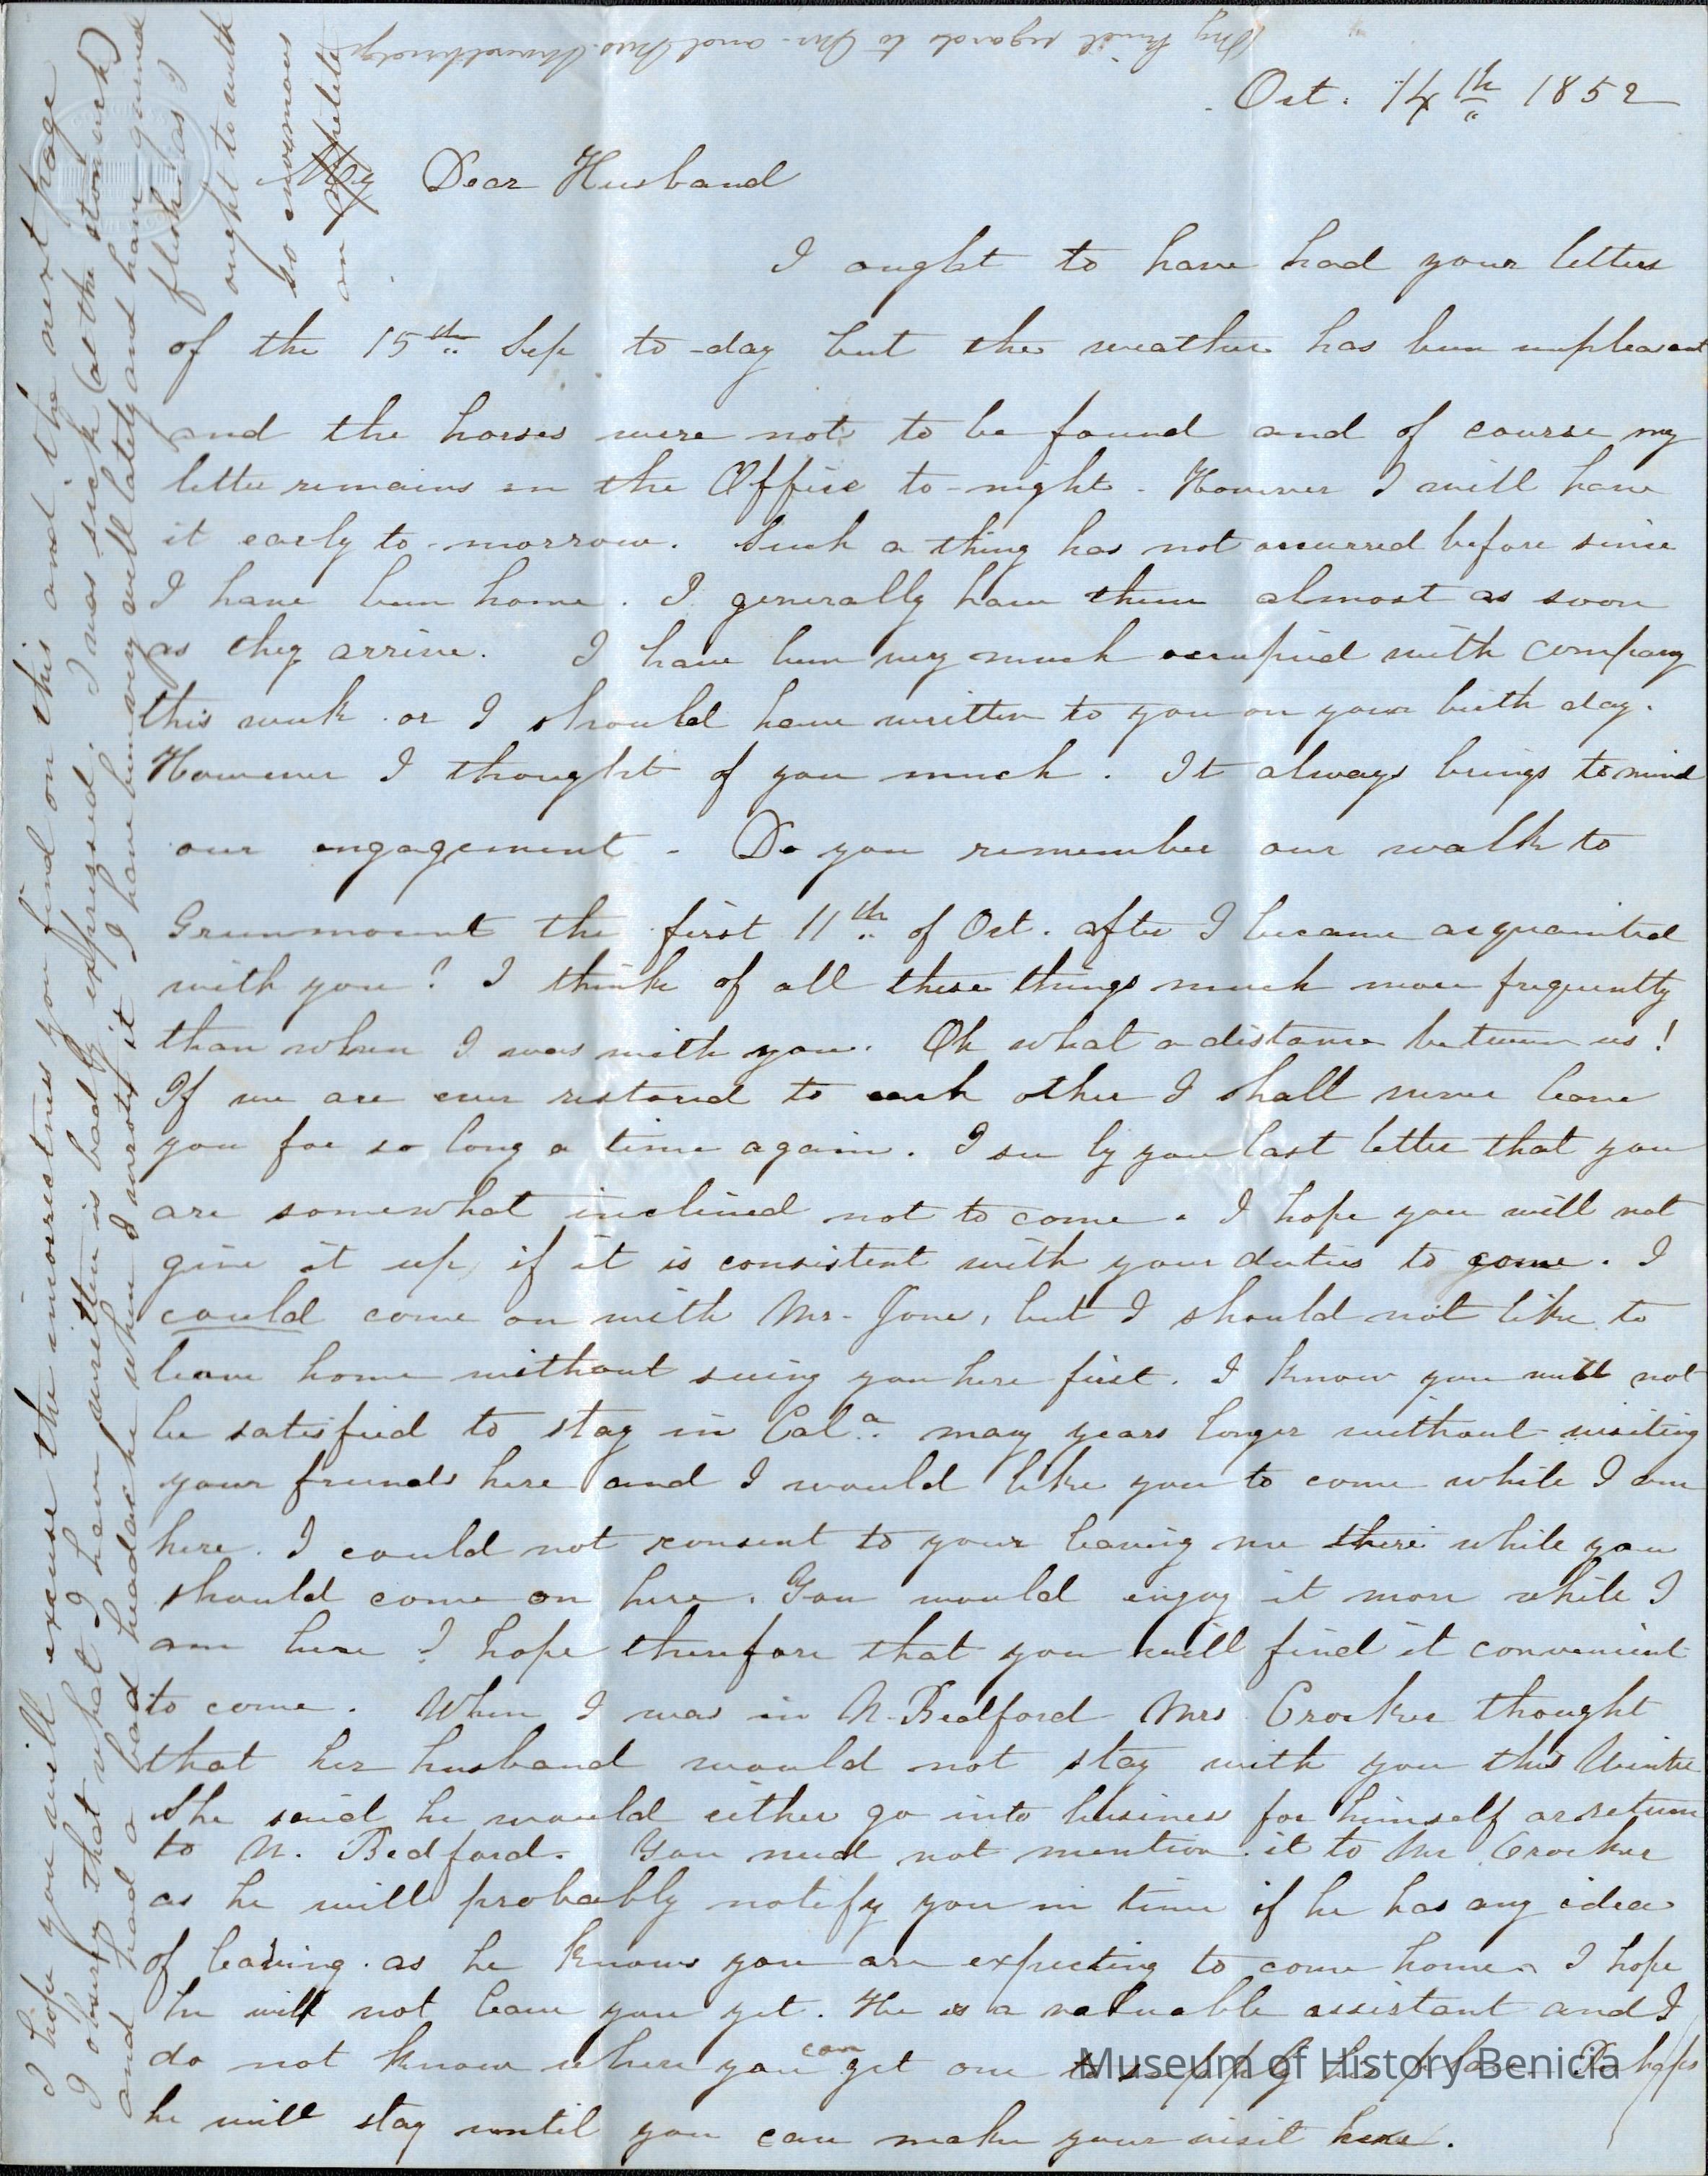 Oct. 14th 1852
My Dear Husband
I ought to have had your letters
of the 15th Sep to-day but the weather has been unpleasant
and the horses were not to be found and of course my
letter remains in the Office to-night. However I will have
it early to-morrow. Such a thing has not occurred before since
I have been home. I generally have them almost as soon
as they arrive. I have been very much occupied with company
this week or I should have written to you on your birth day.
However I thought of you much. It always brings to mind
our engagement - Do you remember our walk to
Greenmount the first 11th of Oct. after I became acquainted
with you? I think of all these things much more frequently
than when I was with you. Oh what a distance between us!
If we are ever restored to each other I shall never leave
you for so long a time again. I see by you last letter that you
are somewhat inclined not to come. I hope you will not
give it up if it is consistent with your duties to come. I
could come on with Mr. Jone, but I should not like to
leave home without seeing you here first. I know you will not
be satisfied to stay in Cala. may years longer without visiting
your friends here and I would like you to come while I am
here. I could not consent to your leaving me there while you
should come on here. You would enjoy it more while I
am here I hope therefore that you will find it convenient
to come. When I was in N. Bedford Mrs Crocker thought
that her husband would not stay with you this Winter
She said he would either go into business for himself or return
to N. Bedford. You need not mention it to Mr Crocker
as he will probably notify you in time if he has any idea
of leaving as he knows you are expecting to come home. I hope
he will not leave you yet. He is a valuable assistant and I
do not know where you can get one to supply his place. Perhaps
he will stay until you can make your visit here.
I hope you will excuse the incorrectness you find on this and the next page
I observe that what I have written is badly expressed. I was sick (at the stomach)
and had a bad headache when I wrote it I have been very well lately and have gained
flesh (as I
ought to with
so enormous
an appetite
My kind regards to Mr. and Mrs.
Museum of History Benicia